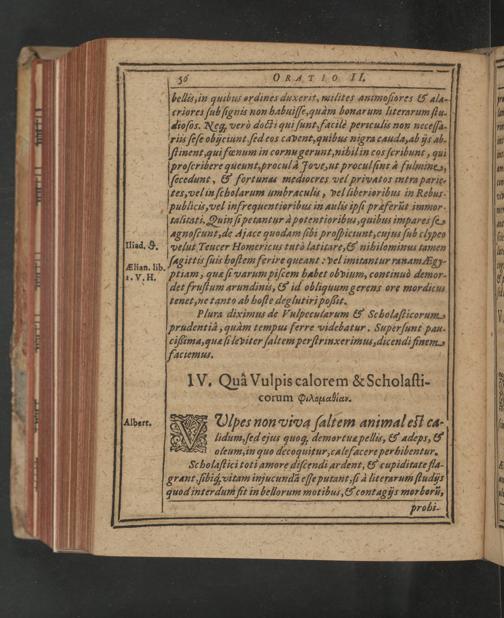 56 ORATIO II.
bellis, in quibus ordines duxerit, milites animosiores & ala-
criores sub signis non habuisse, quàm bonarum literarum stu-
diosos. Neq, verò docti qui sunt, facilè periculis non necessa-
riis sese obijciunt. sed eos cavent, quibus nigra cauda, ab ijs ab-
stinent, qui fœnum in cornu gerunt, nihil in eos scribunt, qui
proscribere queunt, procul à Jove, ut procul sint à fulmine,
secedunt, & fortunas mediocres vel privatos intra parie-
tes, vel in scholarum umbraculis, vel liberioribus in Rebus-
publicis, vel infrequentioribus in aulis ipsi præferūt immor-
talitati. Quin si petantur à potentioribus, quibus impares se
agnoscunt, de Ajace quodam sibi prospiciunt, cujus sub clypeo
Iliad. θ. velut Teucer Homericus tutò latitare, & nihilominus tamen
sagittis suis hostem ferire queant: vel imitantur ranam Ægy-
Ælian. lib. ptiam, quæ si varum piscem habet obvium, continuò demor-
1. V. H. det frustum arundinis, & id obliquum gerens ore mordicus
tenet, ne tanto ab hoste deglutiri possit.
Plura diximus de Vulpecularum & Scholasticorum
prudentiâ, quàm tempus ferre videbatur. Supersunt pau-
cissima, quæ si leviter saltem perstrinxerimus, dicendi finem
faciemus.
IV. Quâ Vulpis calorem & Scholasti-
corum φιλομαθίαν.
Albert. VUlpes non viva saltem animal est ca-
lidum, sed ejus quoq, demortuæ pellis, & adeps, &
oleum, in quo decoquitur, calefacere perhibentur.
Scholastici toti amore discendi ardent, & cupiditate fla-
grant. sibiq́, vitam injucundā esse putant, si à literarum studijs
quod interdum fit in bellorum motibus, & contagijs morborū,
prohi-